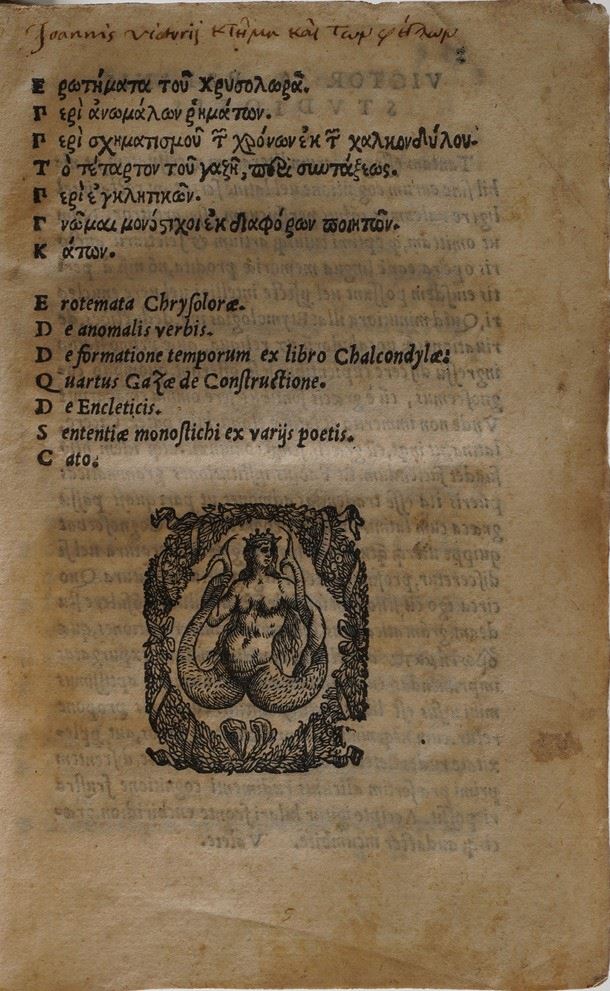 Joannis Victorij κτῆμα καὶ τῶν φίλων
Ερωτήματα τοῦ Χρυσολωρᾶ.
Γερὶ ἀνωμάλων ῥημάτων.
Γερὶ σχηματισμοῦ τῶν χρόνων ἐκ τῶν χαλκονδύλου.
Τὸ τέταρτον τοῦ γαζῆ, περὶ συντάξεως.
Γερὶ ἐγκλητικῶν.
Γνῶμαι μονόστιχοι ἐκ διαφόρων ποιητῶν.
Κάτων.
Erotemata Chrysoloræ.
De anomalis verbis.
De formatione temporum ex libro Chalcondylæ:
Quartus Gazæ de Constructione.
De Encleticis.
Sententiæ monostichi ex varijs poetis.
Cato: